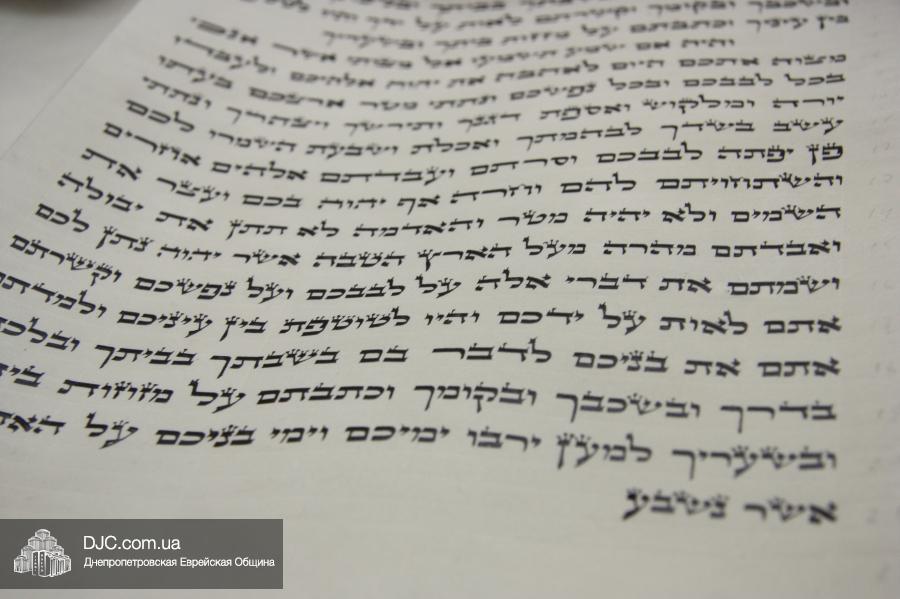 ובשכבך ובקומך וקשרתם לאות על ידך והיו
בין עיניך וכתבתם על מזוזות ביתך ובשעריך
והיה אם שמע תשמעו אל מצותי אשר אנכי
מצוה אתכם היום לאהבה את יהוה אלהיכם ולעבדו
בכל לבבכם ובכל נפשכם ונתתי מטר ארצכם בעתו
יורה ומלקוש ואספת דגנך ותירשך ויצהרך ונתתי
עשב בשדך לבהמתך ואכלת ושבעת השמרו לכם
פן יפתה לבבכם וסרתם ועבדתם אלהים אחרים
והשתחויתם להם וחרה אף יהוה בכם ועצר את
השמים ולא יהיה מטר והאדמה לא תתן את יבולה
ואבדתם מהרה מעל הארץ הטבה אשר יהוה נתן לכם
ושמתם את דברי אלה על לבבכם ועל נפשכם וקשרתם
אתם לאות על ידכם והיו לטוטפת בין עיניכם ולמדתם
אתם את בניכם לדבר בם בשבתך בביתך ובלכתך
בדרך ובשכבך ובקומך וכתבתם על מזוזות
ובשעריך למען ירבו ימיכם וימי בניכם על
אשר נשבע
DJC.com.ua
Днепропетровская Еврейская Община